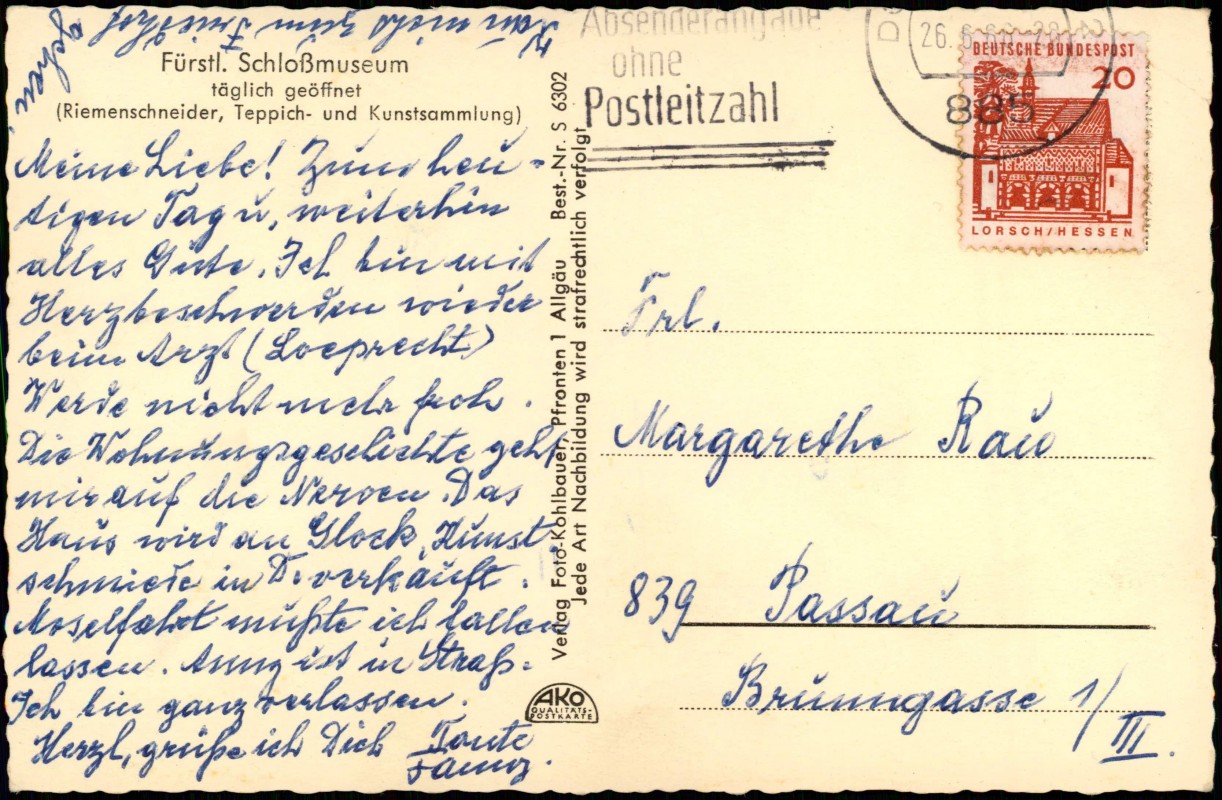 Kann nicht zum Friedhof
gehen.
Fürstl. Schloßmuseum
täglich geöffnet
(Riemenschneider, Teppich- und Kunstsammlung)
Meine Liebe! Zum heu-
tigen Tag u. weiterhin
alles Gute. Ich bin mit
Herzbeschwerden wieder
beim Arzt (Loeprecht)
Werde nicht mehr froh.
Die Wohnungsgeschichte geht
mir auf die Nerven. Das
Haus wird an Glock, Kunst-
schmiede in D. verkauft.
Moselfahrt mußte ich fallen
lassen. Anny ist in Straß-
Ich bin ganz verlassen.
Herzl. grüße ich Dich Tante
Verlag Foto-Kohlbauer, Pfronten 1 Allgäu Best.-Nr. S 6302
Jede Art Nachbildung wird strafrechtlich verfolgt
AKO
QUALITÄTS-
POSTKARTE
Absenderangabe
ohne
Postleitzahl
26.6.
885
DEUTSCHE BUNDESPOST
20
LORSCH/HESSEN
Frl.
Margarethe Rau
839 Passau
Brunngasse 1/
III.